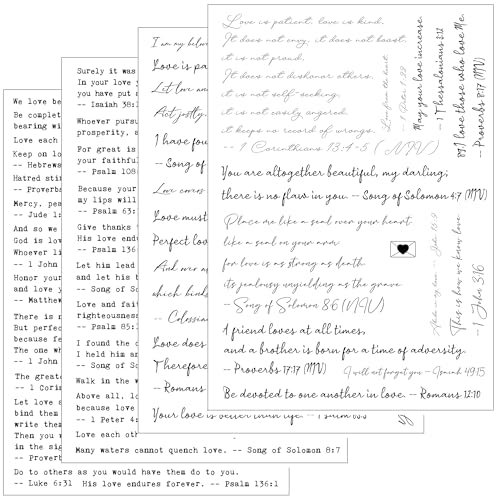 Love is patient, love is kind.
It does not envy, it does not boast,
it is not proud.
It does not dishonor others,
it is not self-seeking,
it is not easily angered,
it keeps no record of wrongs.
-- 1 Corinthians 13:4-5 (NIV)
May your love increase.
-- 1 Thessalonians 3:12
I love those who love Me.
-- Proverbs 8:17 (NIV)
You are altogether beautiful, my darling;
there is no flaw in you. -- Song of Solomon 4:7 (NIV)
Place me like a seal over your heart
like a seal on your arm
for love is as strong as death
its jealousy unyielding as the grave
-- Song of Solomon 8:6 (NIV)
This is how we know love
-- 1 John 3:16
A friend loves at all times,
and a brother is born for a time of adversity.
-- Proverbs 17:17 (NIV)
I will not forget you -- Isaiah 49:15
Be devoted to one another in love. -- Romans 12:10
I am my belov
Love is pa
Let love an
Act justly.
I have fou
-- Song of
Love covers
Love must
Perfect lov
And over a
which binds
-- Colossia
Love does
Therefore
-- Romans
Your love is better than life. -- Psalm 63:3
Surely it was
In your love
you have put a
-- Isaiah 38:1
Whoever pursu
prosperity, a
For great is
your faithful
-- Psalm 108:
Because your
my lips will
-- Psalm 63:
Give thanks t
His love endu
-- Psalm 136
Let him lead
and let his b
-- Song of So
Love and faith
righteousness
-- Psalm 85:1
I found the o
I held him an
-- Song of So
Walk in the w
Above all, lo
because love
-- 1 Peter 4:
Love each oth
Many waters cannot quench love. -- Song of Solomon 8:7
We love bec
Be complet
bearing wi
Love each
Keep on lo
-- Hebrews
Hatred stir
-- Proverbs
Mercy, pea
-- Jude 1:
And so we
God is lov
Whoever li
-- 1 John
Honor your
and love y
-- Matthew
There is n
But perfec
because fe
The one wh
-- 1 John
The greate
-- 1 Corin
Let love a
bind them
write them
Then you w
in the sig
-- Proverb
Do to others as you would have them do to you.
-- Luke 6:31 His love endures forever. -- Psalm 136:1